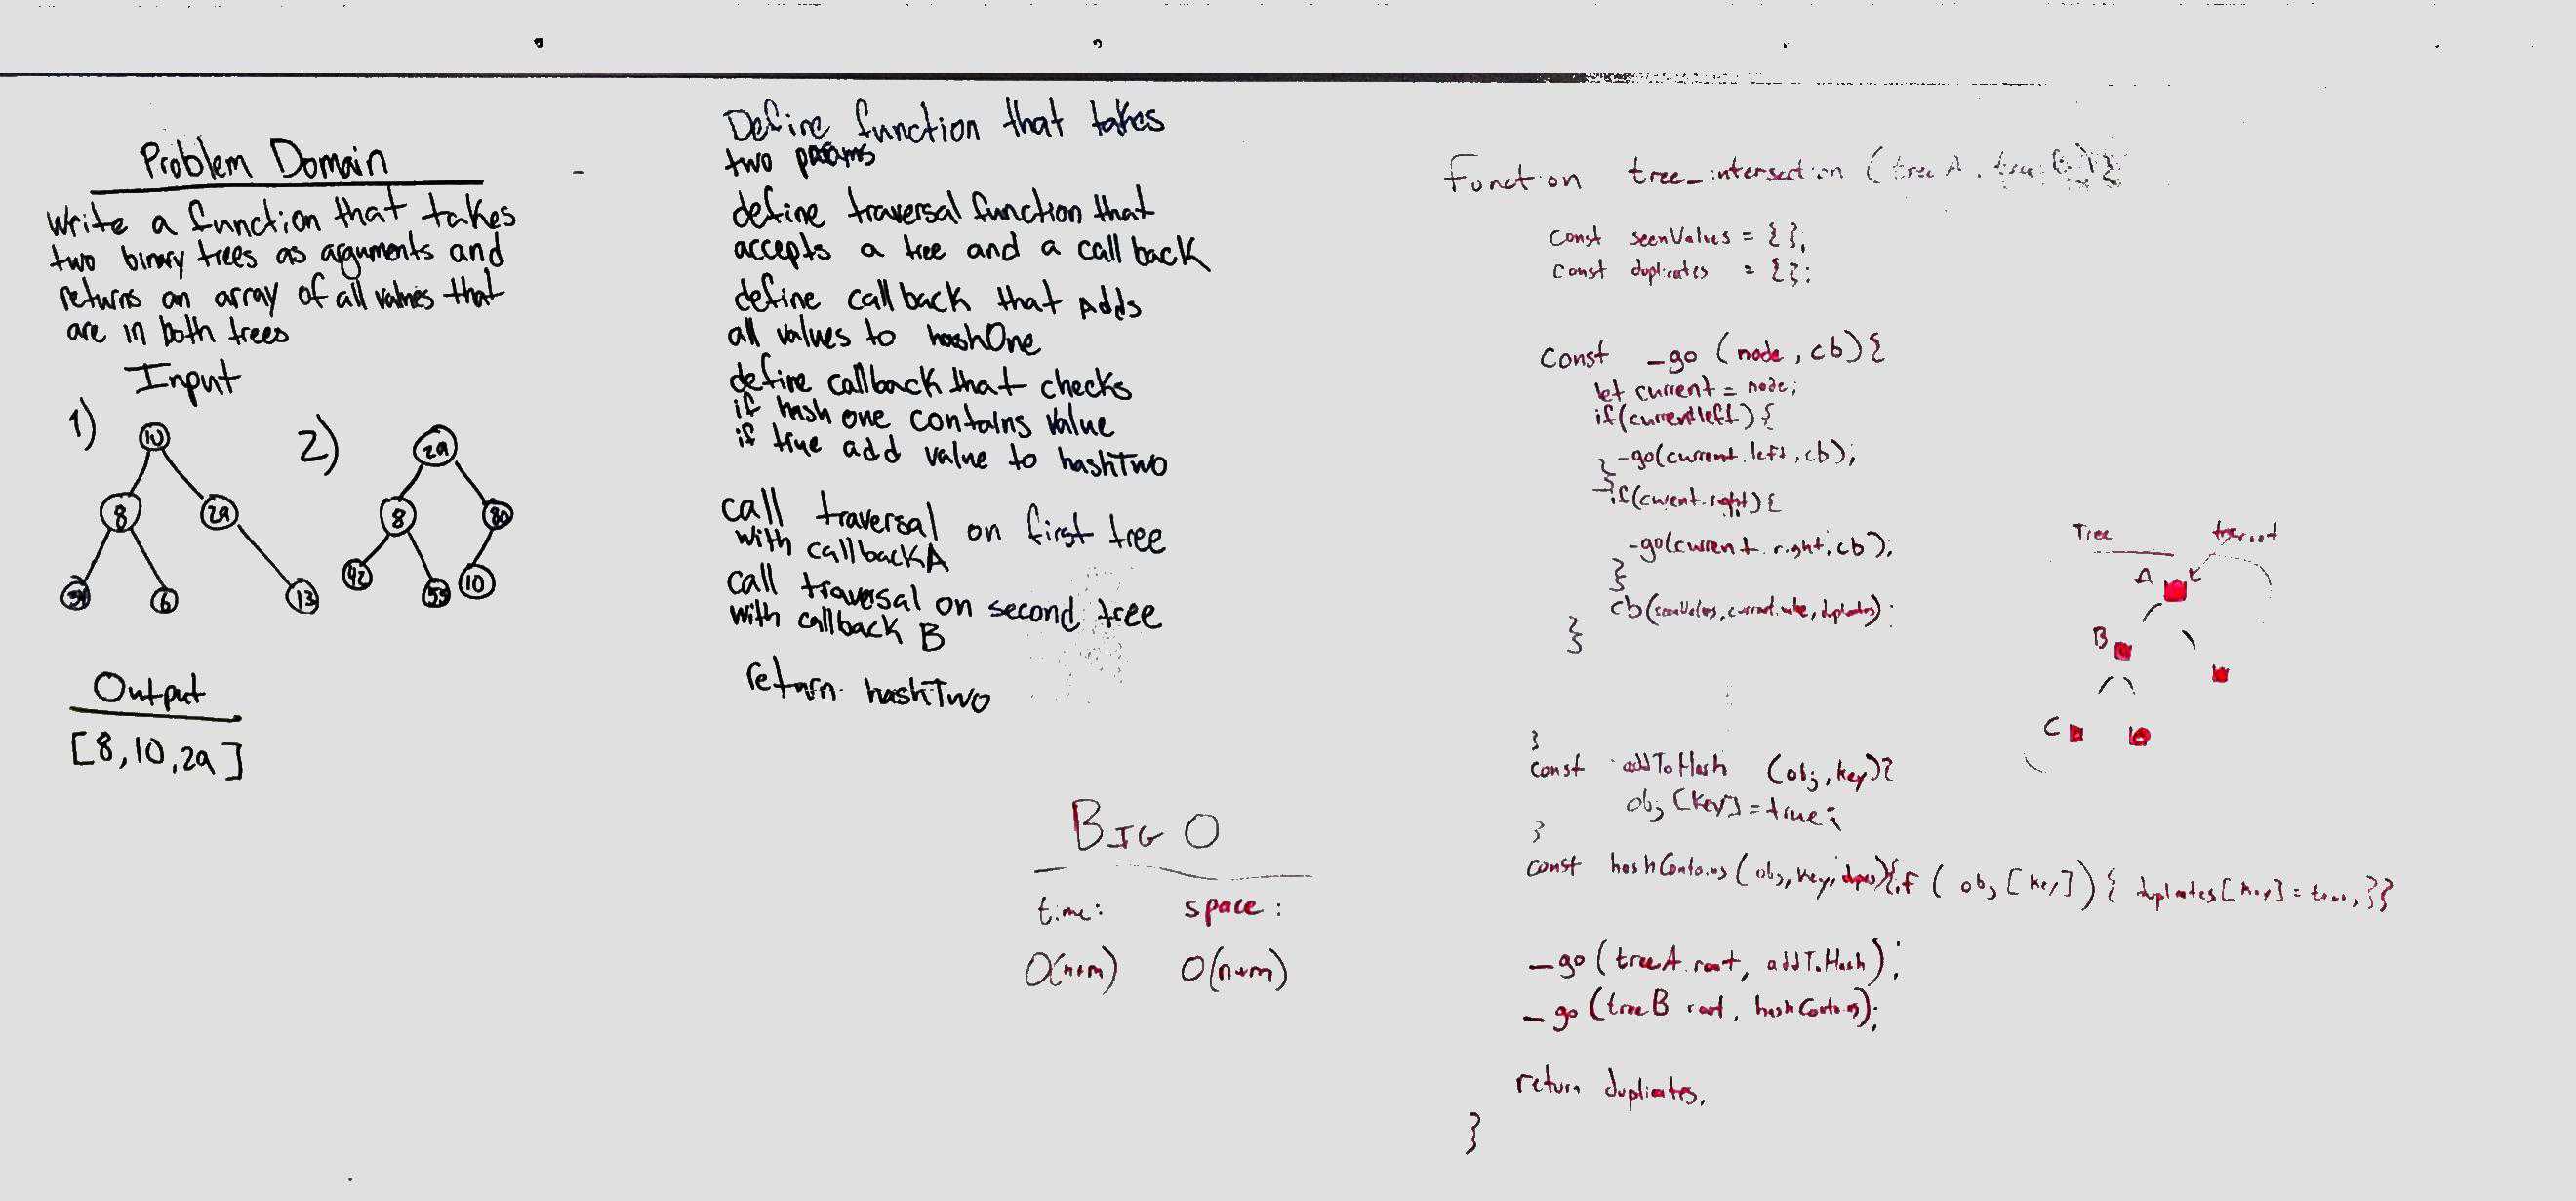 Problem Domain
Write a function that takes
two binary trees as arguments and
returns an array of all values that
are in both trees
Input
1)
10
8
29
6
13
2)
29
8
80
42
55
10
Output
[8,10,29]
Define function that takes
two params
define traversal function that
accepts a tree and a call back
define callback that Adds
all values to hashOne
define callback that checks
if hash one contains value
if true add value to hashTwo
call traversal on first tree
with callbackA
call traversal on second tree
with callback B
return hashTwo
BIG O
time: space:
O(n+m) O(n+m)
Function tree_intersection (treeA, treeB){
const seenValues = {};
const duplicates = {};
const _go (node, cb){
let current = node;
if(current.left){
_go(current.left, cb);
}
if(current.right){
_go(current.right, cb);
}
cb(seenValues, current.value, duplicates);
}
}
const addToHash (obj, key){
obj [key] = true;
}
const hashContains (obj, key, dupes){if ( obj [key]) { duplicates [key] = true; }}
_go (treeA.root, addToHash);
_go (treeB root, hashContains);
return duplicates;
}
Tree
A
B
C